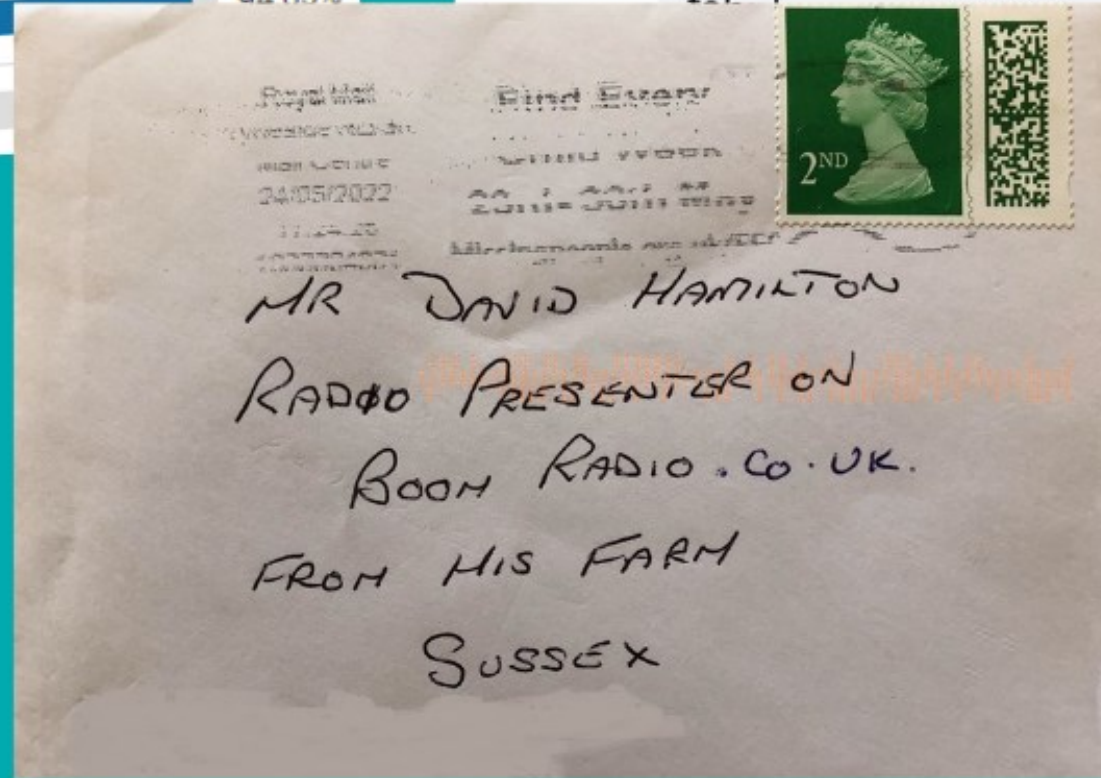 Royal Mail
Mail Centre
24/05/2022
Find Every
Child Week
2ND
MR DAVID HAMILTON
RADIO PRESENTER ON
BOOM RADIO.CO.UK.
FROM HIS FARM
SUSSEX